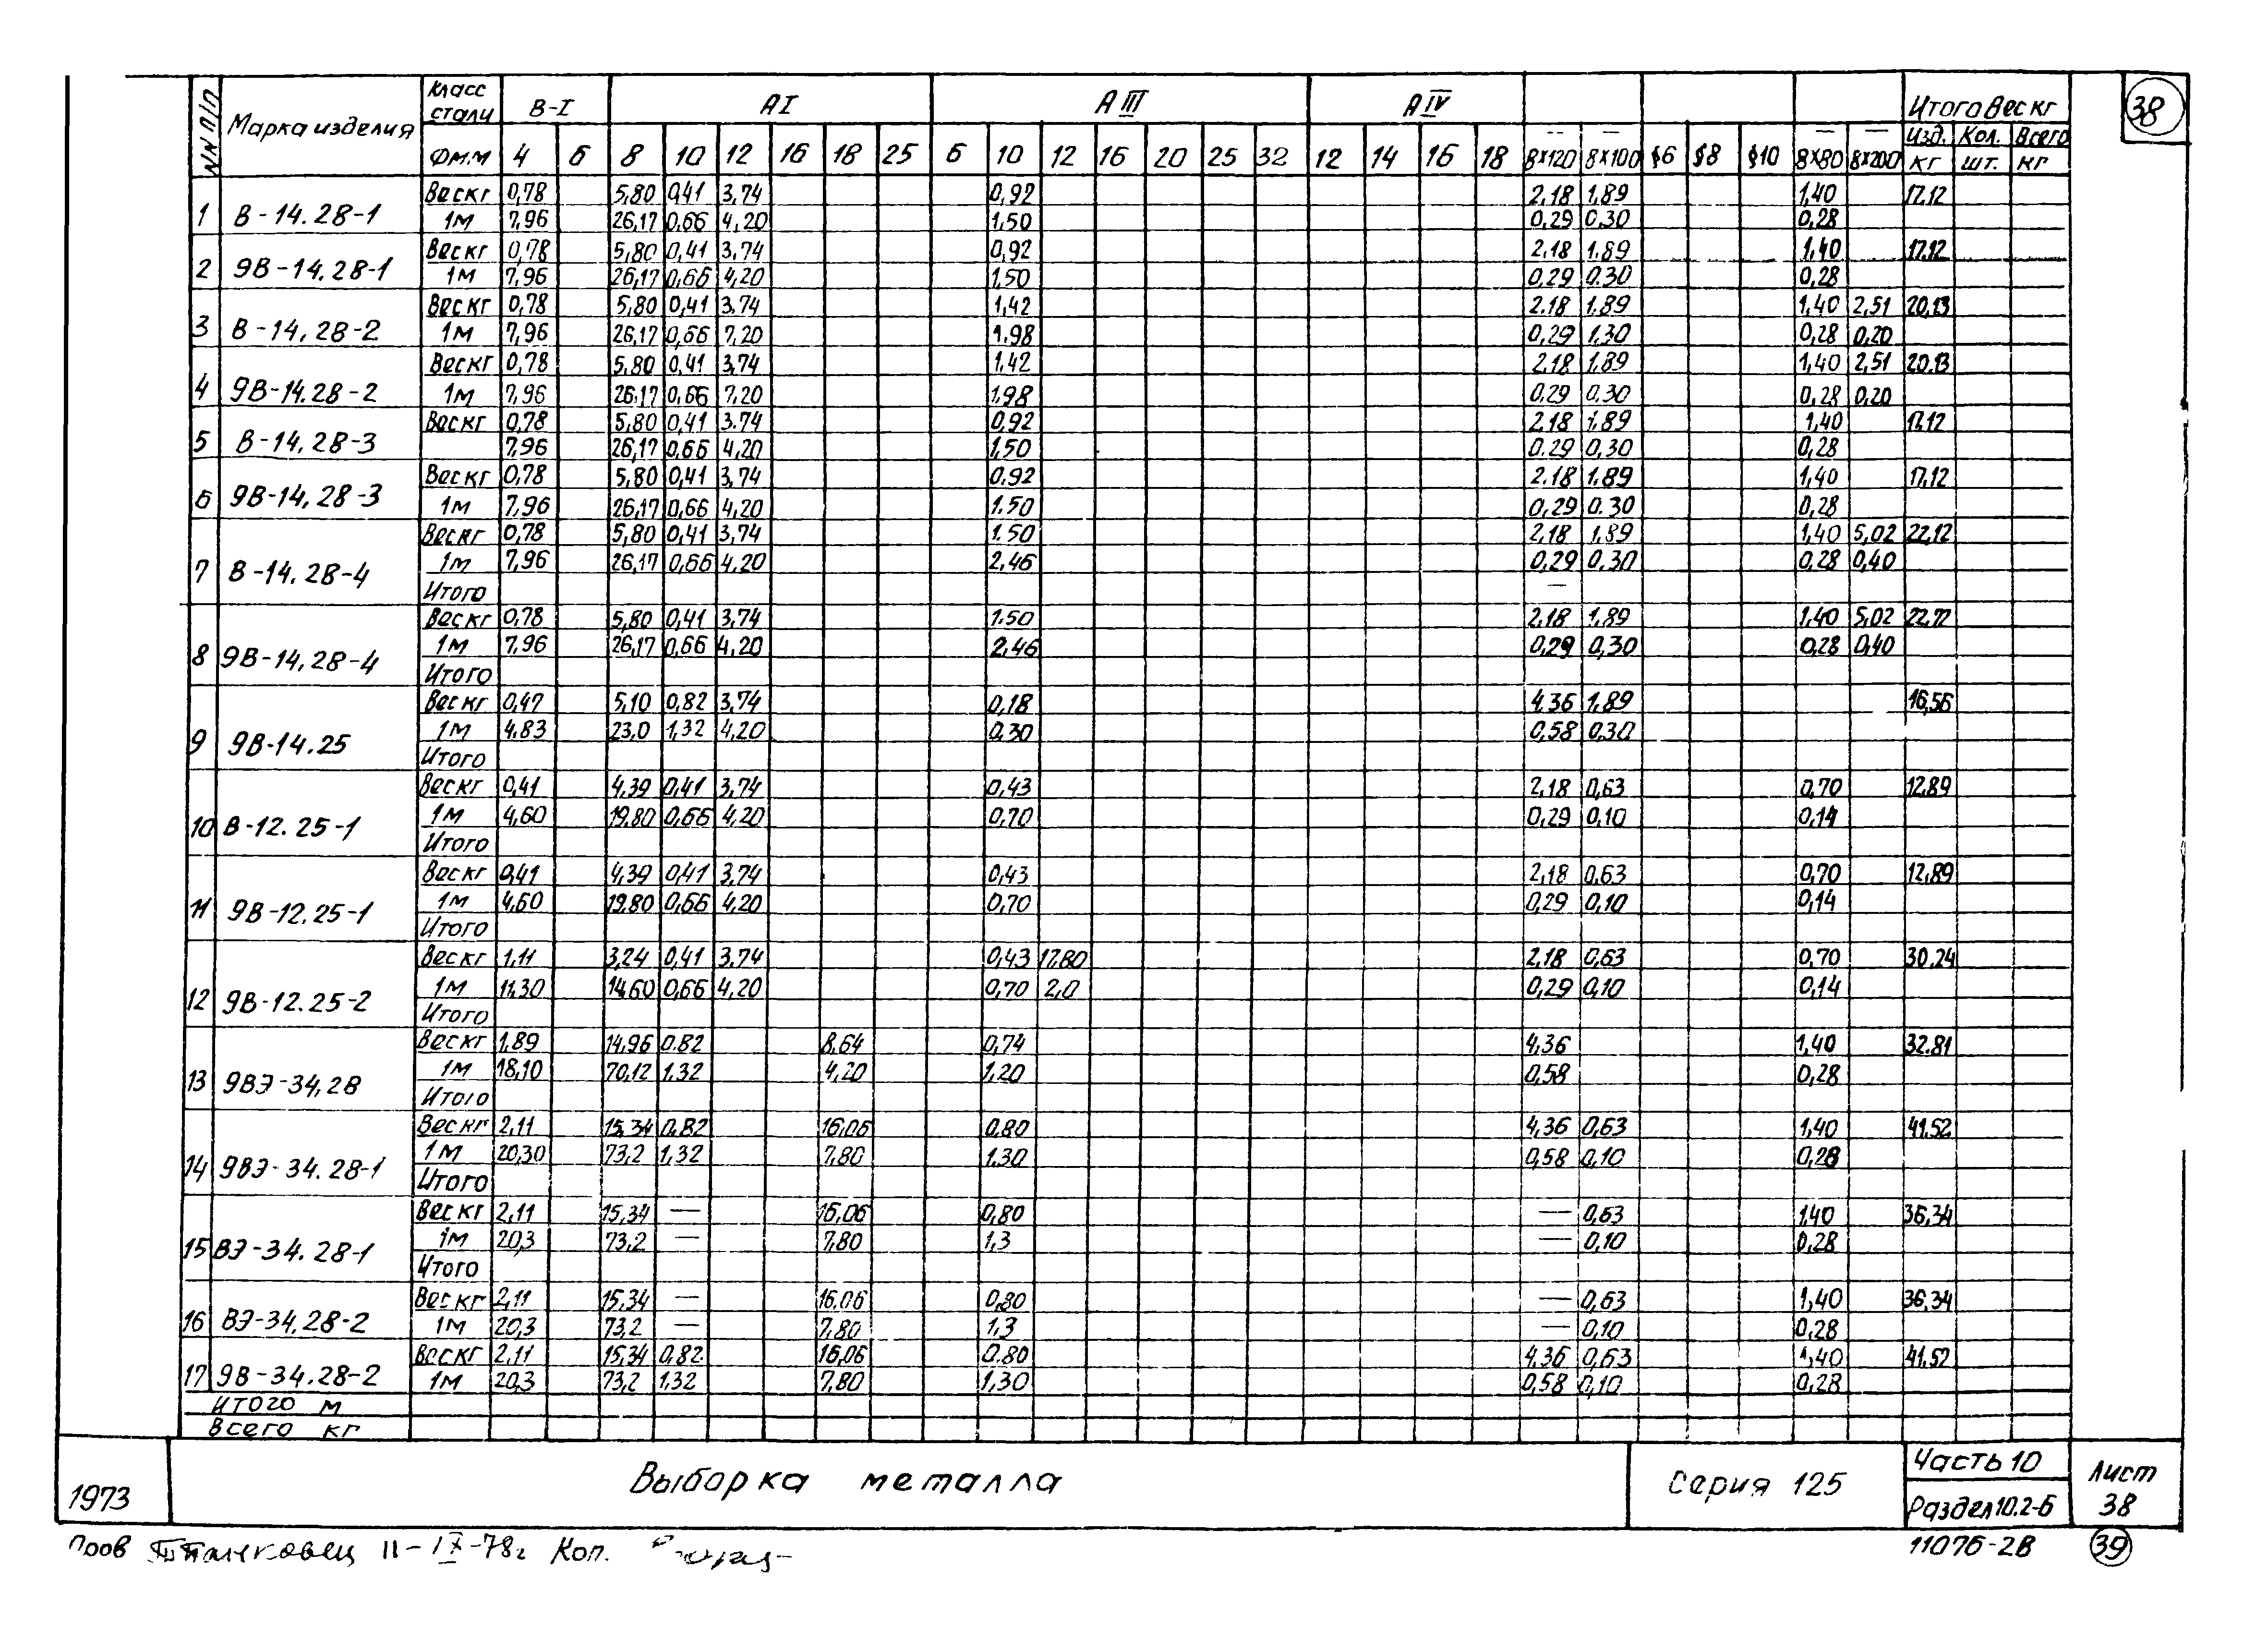 38
NN п/п Марка изделия Класс стали В-I АI АIII АIV Итого Вес кг
Изд. Кол. Всего
Фмм 4 6 8 10 12 16 18 25 6 10 12 16 20 25 32 12 14 16 18 8×120 8×100 §6 §8 §10 8×80 8×200 кг шт. кг
1 В-14.28-1 Вес кг 0,78 5,80 0,41 3,74 0,92 2,18 1,89 1,40 17,12
1м 7,96 26,17 0,66 4,20 1,50 0,29 0,30 0,28
2 9В-14.28-1 Вес кг 0,78 5,80 0,41 3,74 0,92 2,18 1,89 1,40 17,12
1м 7,96 26,17 0,66 4,20 1,50 0,29 0,30 0,28
3 В-14,28-2 Вес кг 0,78 5,80 0,41 3,74 1,42 2,18 1,89 1,40 2,51 20,13
1м 7,96 26,17 0,66 7,20 1,98 0,29 1,30 0,28 0,20
4 9В-14.28-2 Вес кг 0,78 5,80 0,41 3,74 1,42 2,18 1,89 1,40 2,51 20,13
1м 7,96 26,17 0,66 7,20 1,98 0,29 0,30 0,28 0,20
5 В-14,28-3 Вес кг 0,78 5,80 0,41 3,74 0,92 2,18 1,89 1,40 17,12
7,96 26,17 0,66 4,20 1,50 0,29 0,30 0,28
6 9В-14,28-3 Вес кг 0,78 5,80 0,41 3,74 0,92 2,18 1,89 1,40 17,12
1м 7,96 26,17 0,66 4,20 1,50 0,29 0.30 0,28
7 В-14.28-4 Вес кг 0,78 5,80 0,41 3,74 1.50 2,18 1,89 1,40 5,02 22,12
1м 7,96 26,17 0,66 4,20 2,46 0,29 0.30 0,28 0,40
Итого —
8 9В-14,28-4 Вес кг 0,78 5,80 0,41 3,74 1.50 2,18 1,89 1,40 5,02 22,12
1м 7,96 26,17 0,66 4,20 2,46 0,29 0,30 0,28 0,40
Итого
9 9В-14.25 Вес кг 0,47 5,10 0,82 3,74 0,18 4,36 1,89 16,56
1м 4,83 23,0 1,32 4,20 0,30 0,58 0,30
Итого
10 В-12.25-1 Вес кг 0,41 4,39 0,41 3,74 0,43 2,18 0,63 0,70 12,89
1м 4,60 19,80 0,66 4,20 0,70 0,29 0,10 0,14
Итого
11 9В-12.25-1 Вес кг 0,41 4,39 0,41 3,74 0,43 2,18 0,63 0,70 12,89
1м 4,60 19,80 0,66 4,20 0,70 0,29 0,10 0,14
Итого
12 9В-12.25-2 Вес кг 1,11 3,24 0,41 3,74 0,43 17,80 2,18 0,63 0,70 30,24
1м 11,30 14,60 0,66 4,20 0,70 2,0 0,29 0,10 0,14
Итого
13 9ВЭ-34,28 Вес кг 1,89 14,96 0.82 8,64 0,74 4,36 1,40 32.81
1м 18,10 70,12 1,32 4,20 1,20 0,58 0,28
Итого
14 9ВЭ-34.28-1 Вес кг 2,11 15,34 0,82 16,06 0,80 4,36 0,63 1,40 41,52
1м 20,30 73,2 1,32 7,80 1.30 0,58 0,10 0,28
Итого
15 ВЭ-34.28-1 Вес кг 2,11 15,34 — 16,06 0,80 — 0,63 1,40 36,34
1м 20,3 73,2 — 7,80 1,3 — 0,10 0,28
Итого
16 ВЭ-34,28-2 Вес кг 2,11 15,34 — 16,06 0,80 — 0,63 1,40 36,34
1м 20,3 73,2 — 7,80 1,3 — 0,10 0,28
17 9В-34.28-2 Вес кг 2,11 15,34 0,82 16,06 0.80 4,36 0,63 1,40 41,52
1м 20,3 73,2 1,32 7,80 1,30 0,58 0,10 0,28
Итого м
Всего кг
1973 Выборка металла Серия 125 Часть 10 Раздел 10.2-б Лист 38
Пров II-IX-78г Коп.
11076-2В 39